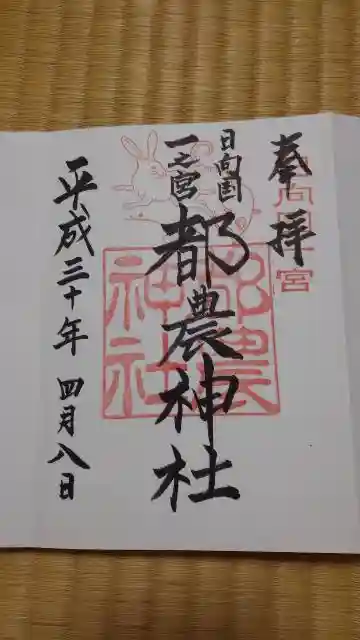 奉拝
日向国一宮
日向国
一之宮
都農神社
都農神社
平成三十年 四月八日